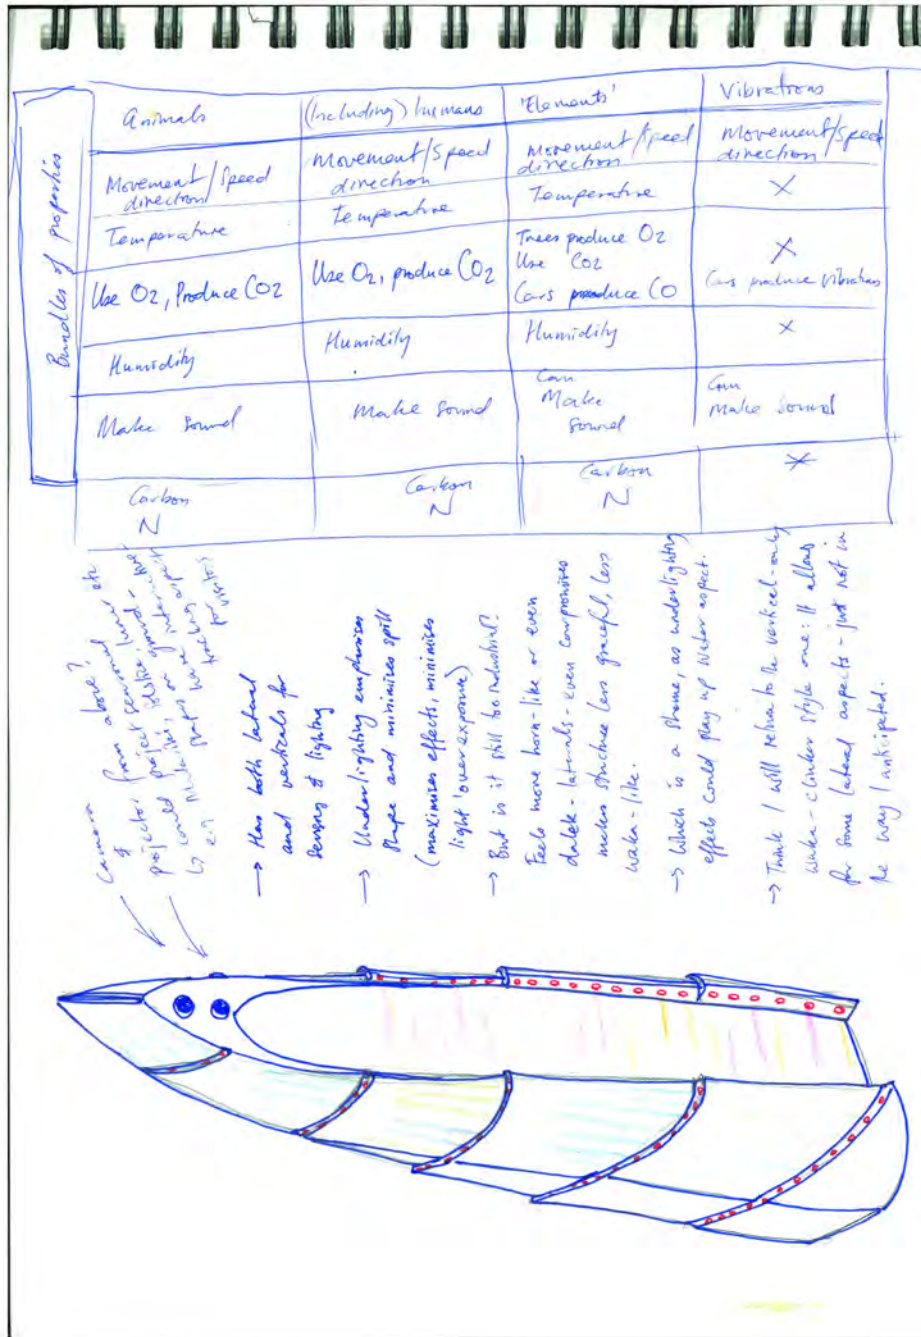 Bundles of properties
Animals
(Including) humans
'Elements'
Vibrations
Movement/Speed
direction
Movement/Speed
direction
Movement/Speed
direction
Movement/Speed
direction
Temperature
Temperature
Temperature
X
Use O2, Produce CO2
Use O2, produce CO2
Trees produce O2
Use CO2
Cars produce CO
X
Cars produce vibrations
Humidity
Humidity
Humidity
X
Make sound
Make sound
Can
Make
sound
Can
make sound
Carbon
N
Carbon
N
Carbon
N
X
Camera from above?
& projector etc
project
could project
for visitors
→ Has both lateral
and verticals for
sensors & lighting
→ Underlighting emphasises
shape and minimises spill
(maximises effects, minimises
light 'overexposure')
→ But is it still too industrial?
Feels more horn-like or even
dalek - laterals - even compromises
makes structure less graceful, less
waka-like.
→ Which is a shame, as underlighting
effects could play up water aspect.
→ Think I will return to the vertical-only
waka-clinker style one: it allows
for some lateral aspects - just not in
the way I anticipated.